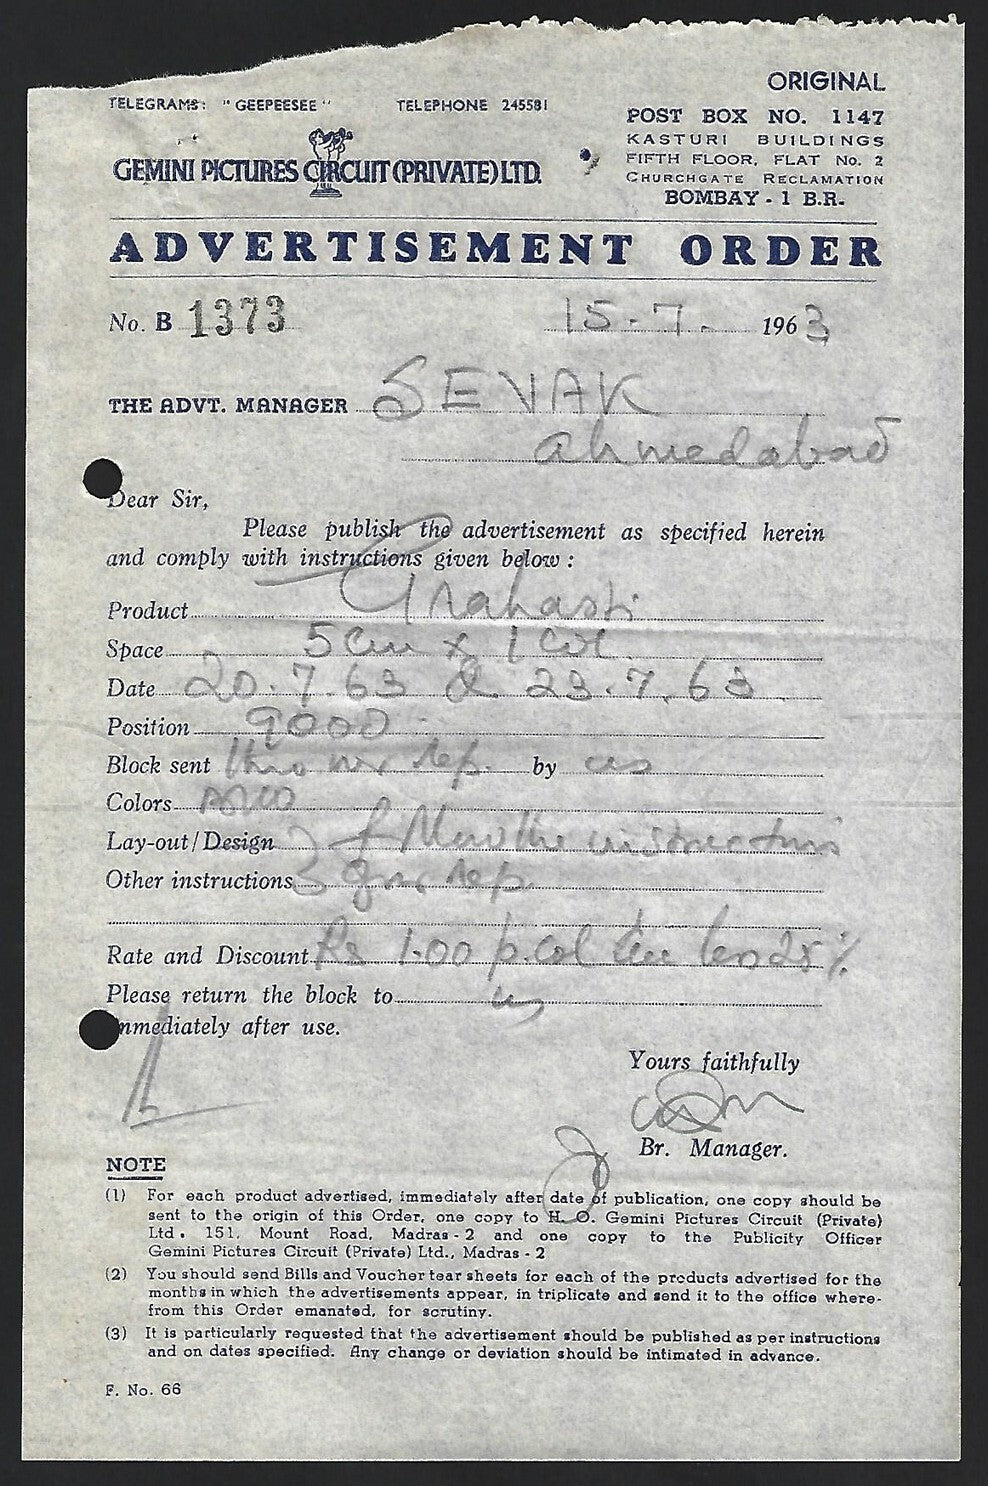 ORIGINAL
TELEGRAMS: "GEEPEESEE" TELEPHONE 245581
POST BOX NO. 1147
KASTURI BUILDINGS
FIFTH FLOOR, FLAT No. 2
CHURCHGATE RECLAMATION
BOMBAY - 1 B.R.
GEMINI PICTURES CIRCUIT (PRIVATE) LTD.
ADVERTISEMENT ORDER
No. B 1373 15.7. 1963
THE ADVT. MANAGER SEVAK
Ahmedabad
Dear Sir,
Please publish the advertisement as specified herein
and comply with instructions given below:
Product Grahasti
Space 5 cm x 1 col.
Date 20.7.63 & 23.7.63
Position good
Block sent thro our rep. by us
Colors
Lay-out/Design follow the instructions
Other instructions of our rep.
Rate and Discount Rs 1.00 p.col cm less 25%
Please return the block to us
immediately after use.
Yours faithfully
Br. Manager.
NOTE
(1) For each product advertised, immediately after date of publication, one copy should be
sent to the origin of this Order, one copy to H. O. Gemini Pictures Circuit (Private)
Ltd. 151, Mount Road, Madras - 2 and one copy to the Publicity Officer
Gemini Pictures Circuit (Private) Ltd., Madras - 2
(2) You should send Bills and Voucher tear sheets for each of the products advertised for the
months in which the advertisements appear, in triplicate and send it to the office where-
from this Order emanated, for scrutiny.
(3) It is particularly requested that the advertisement should be published as per instructions
and on dates specified. Any change or deviation should be intimated in advance.
F. No. 66